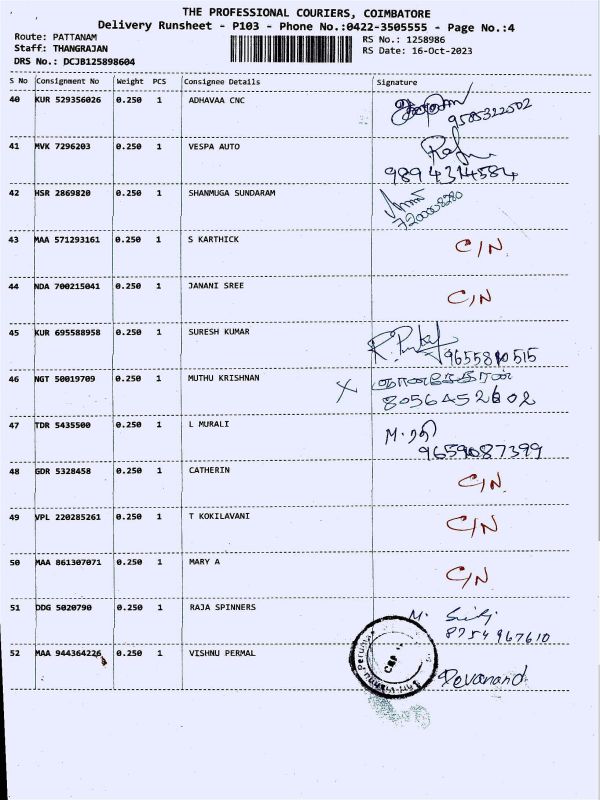 THE PROFESSIONAL COURIERS, COIMBATORE
Delivery Runsheet - P103 - Phone No.:0422-3505555 - Page No.:4
Route: PATTANAM
RS No.: 1258986
Staff: THANGRAJAN
RS Date: 16-Oct-2023
DRS No.: DCJB125898604
S No Consignment No Weight PCS Consignee Details Signature
40 KUR 529356026 0.250 1 ADHAVAA CNC 9585322502
41 MVK 7296203 0.250 1 VESPA AUTO
9894314584
42 HSR 2869820 0.250 1 SHANMUGA SUNDARAM
7200008280
43 MAA 571293161 0.250 1 S KARTHICK C/N
44 NDA 700215041 0.250 1 JANANI SREE C/N
45 KUR 695588958 0.250 1 SURESH KUMAR
9655810515
46 NGT 50019709 0.250 1 MUTHU KRISHNAN X
8056452602
47 TDR 5435500 0.250 1 L MURALI M. ரதி
9659087399
48 GDR 5328458 0.250 1 CATHERIN C/N
49 VPL 220285261 0.250 1 T KOKILAVANI C/N
50 MAA 861307071 0.250 1 MARY A C/N
51 DDG 5020790 0.250 1 RAJA SPINNERS M.
8754967610
52 MAA 944364226 0.250 1 VISHNU PERMAL
Devanand